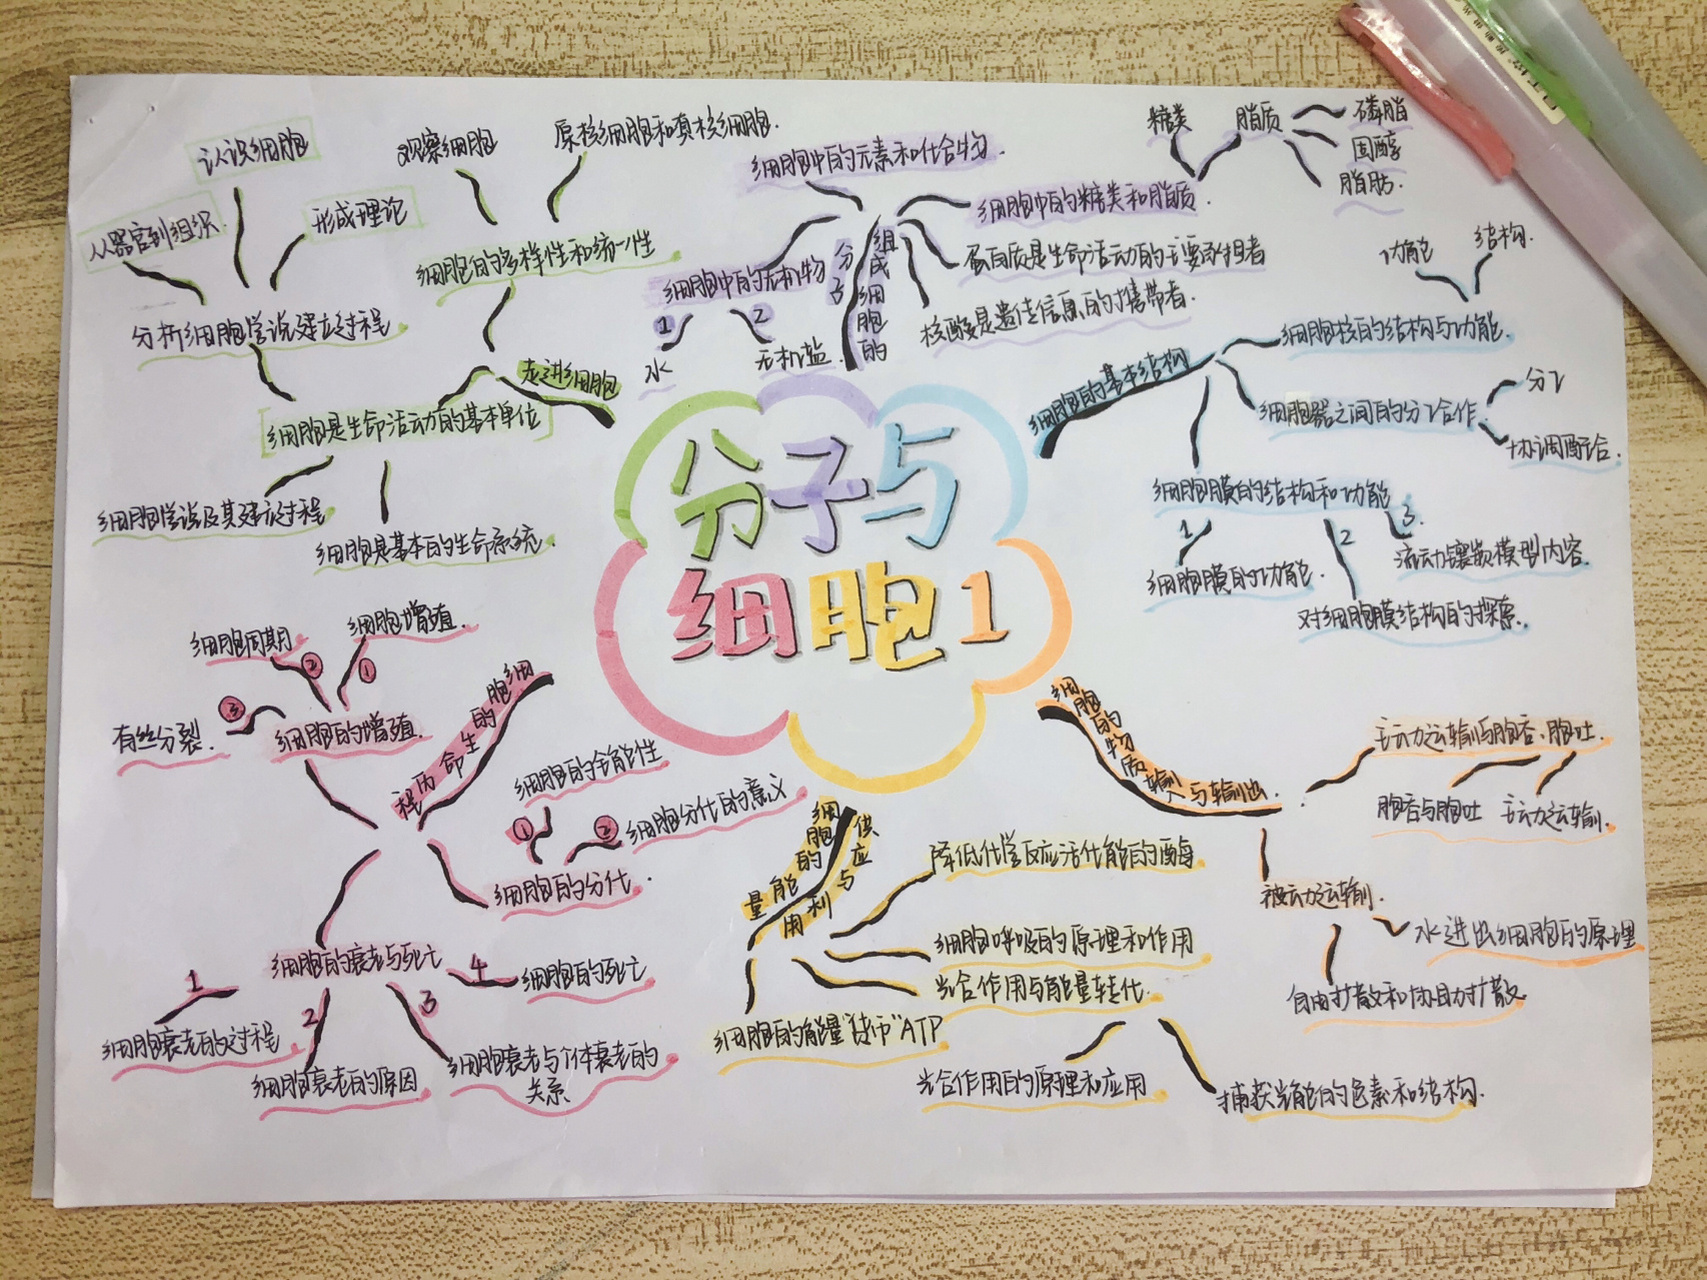 分子与
细胞1
走进细胞
细胞的多样性和统一性
观察细胞
原核细胞和真核细胞.
细胞是生命活动的基本单位
分析细胞学说建立过程.
从器官到组织.
认识细胞
形成理论
细胞学说及其建立过程
细胞是基本的生命系统.
组成细胞的
分子
细胞中的元素和化合物.
细胞中的无机物
1
水
2
无机盐.
细胞中的糖类和脂质.
糖类
脂质
磷脂
固醇
脂肪.
蛋白质是生命活动的主要承担者
核酸是遗传信息的携带者.
细胞的基本结构
细胞核的结构与功能.
功能
结构.
细胞器之间的分工合作.
分工
协调配合.
细胞膜的结构和功能
1
细胞膜的功能.
2
对细胞膜结构的探索.
3.
流动镶嵌模型内容.
细胞的物质输入与输出.
主动运输与胞吞、胞吐.
胞吞与胞吐
主动运输.
被动运输.
水进出细胞的原理
自由扩散和协助扩散
细胞的能量
供应与利用
降低化学反应活化能的酶
细胞呼吸的原理和作用
光合作用与能量转化.
光合作用的原理和应用
捕获光能的色素和结构.
细胞的能量"货币"ATP
细胞的生命历程
细胞的增殖.
①
细胞增殖.
②
细胞周期
③
有丝分裂.
细胞的分化.
①
细胞的全能性
②
细胞分化的意义
细胞的衰老与死亡
1
细胞衰老的过程
2
细胞衰老的原因
3
细胞衰老与个体衰老的
关系
4
细胞的死亡